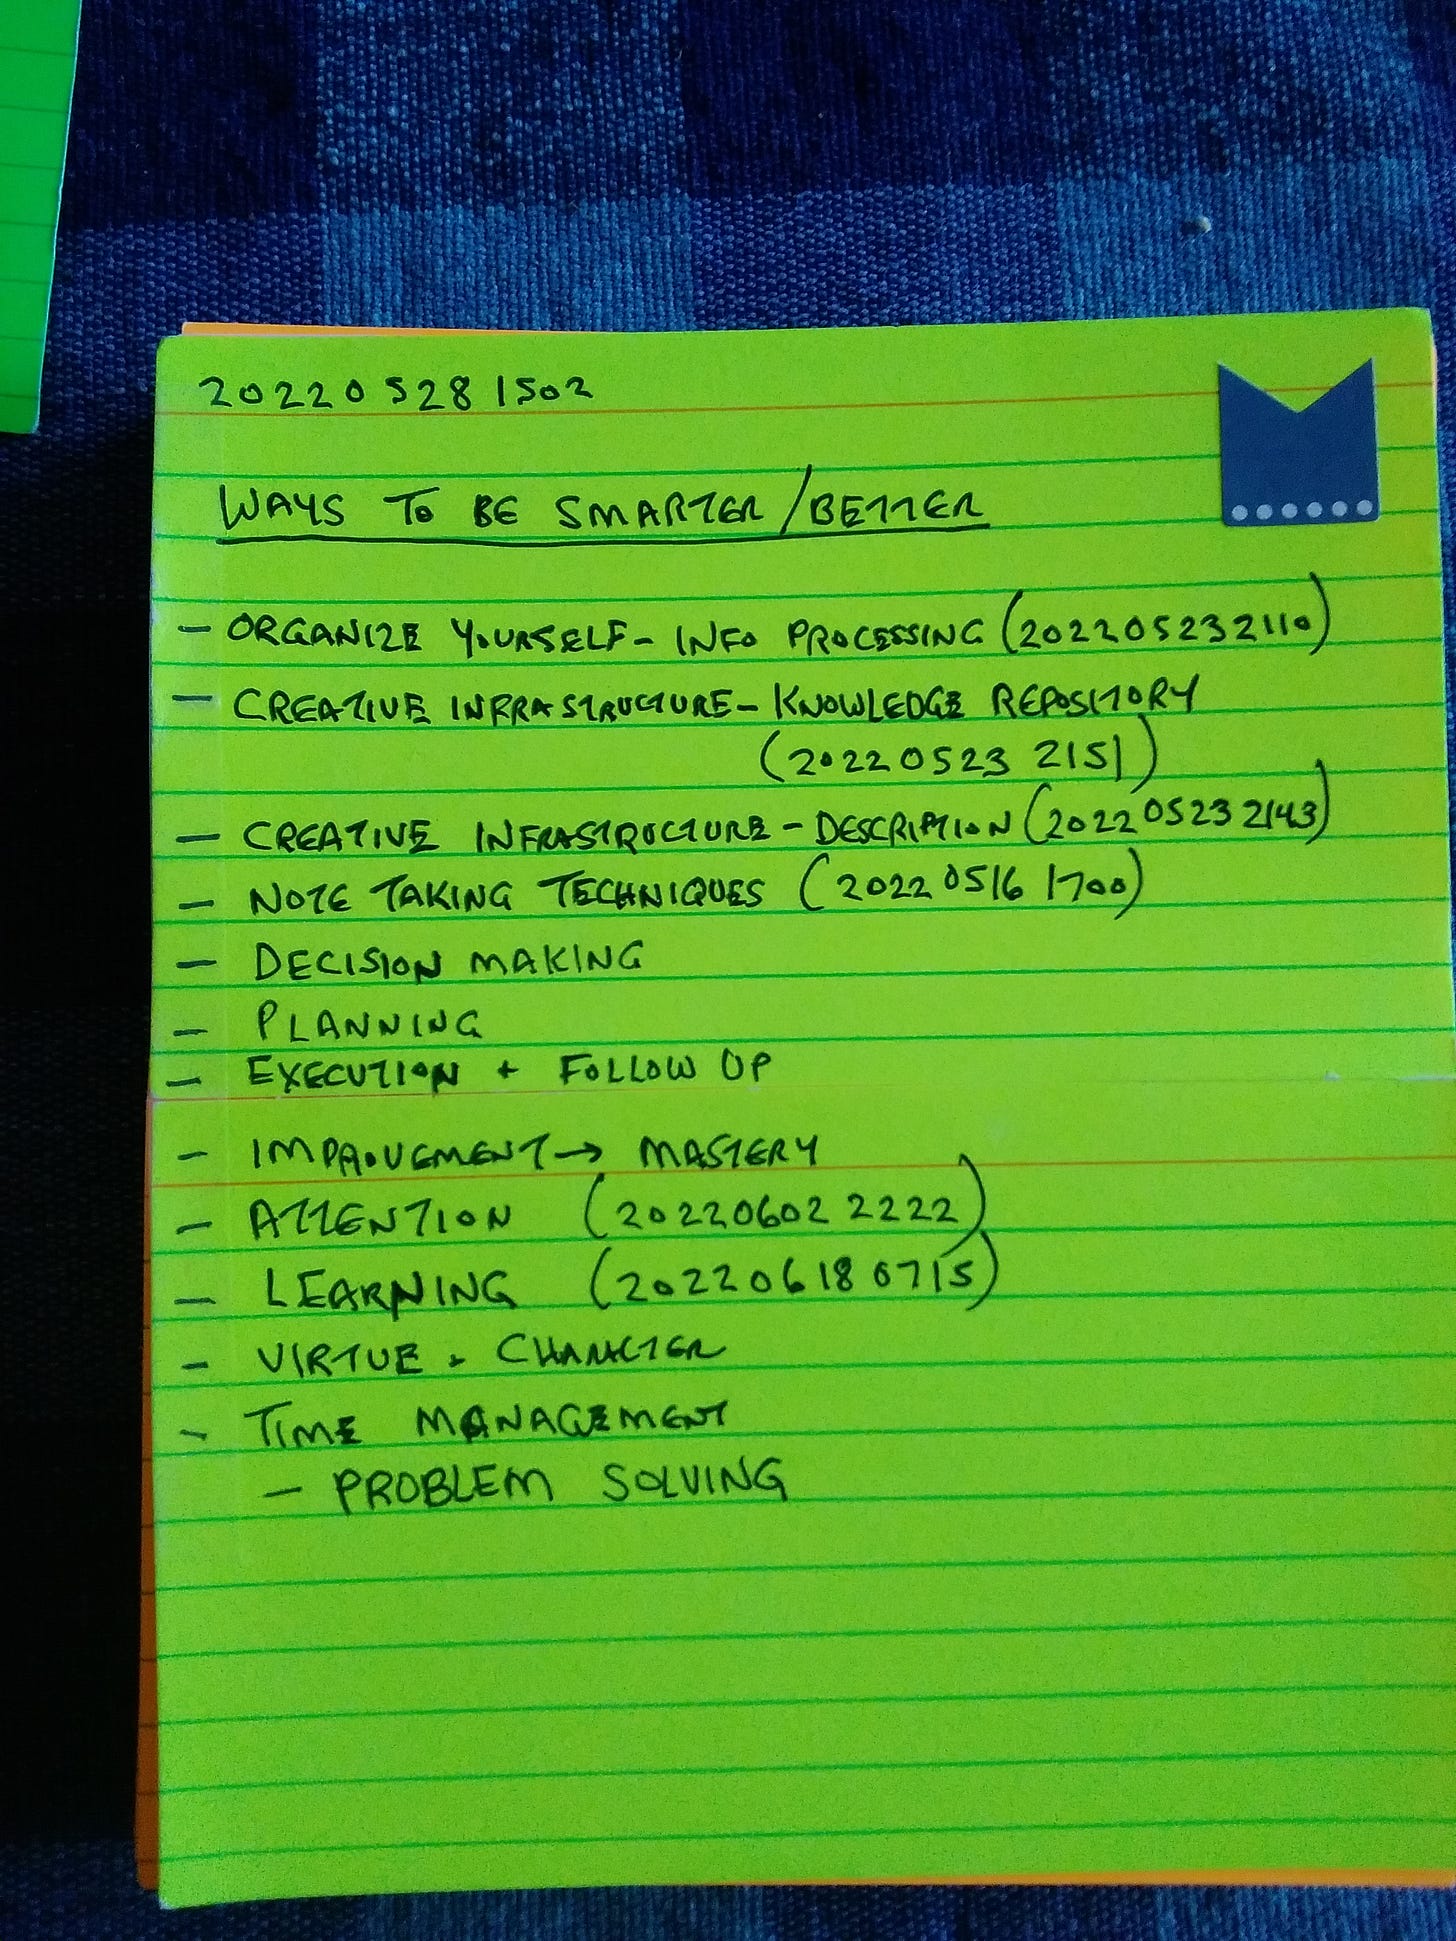 20220528 1502
WAYS TO BE SMARTER/BETTER
- ORGANIZE YOURSELF - INFO PROCESSING (20220523 2110)
- CREATIVE INFRASTRUCTURE - KNOWLEDGE REPOSITORY
(20220523 2151)
- CREATIVE INFRASTRUCTURE - DESCRIPTION (20220523 2143)
- NOTE TAKING TECHNIQUES (20220516 1700)
- DECISION MAKING
- PLANNING
- EXECUTION + FOLLOW UP
- IMPROVEMENT → MASTERY
- ATTENTION (20220602 2222)
- LEARNING (20220618 0715)
- VIRTUE + CHARACTER
- TIME MANAGEMENT
- PROBLEM SOLVING